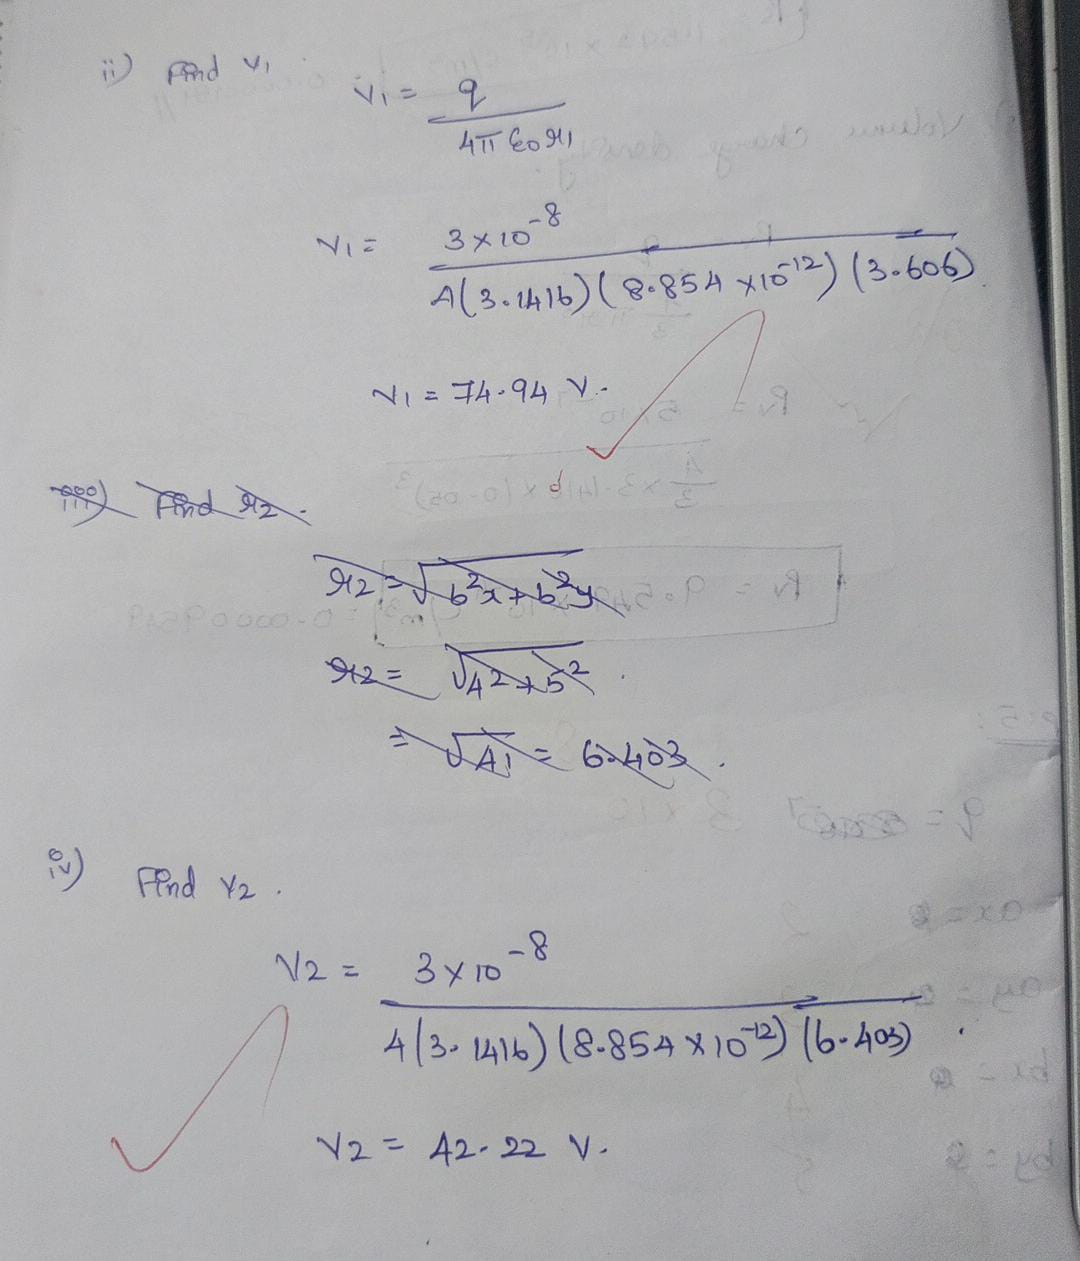 ii) Find V1
V1 = q
4π ε0 r1
V1 = 3×10^-8
4(3.1416)(8.854 ×10^-12)(3.606)
V1 = 74.94 V.
iii) Find r2.
r2 = √b²x + b²y
r2 = √4² + 5².
= √41 = 6.403.
iv) Find V2.
V2 = 3×10^-8
4(3.1416)(8.854×10^-12)(6.403).
V2 = 42.22 V.